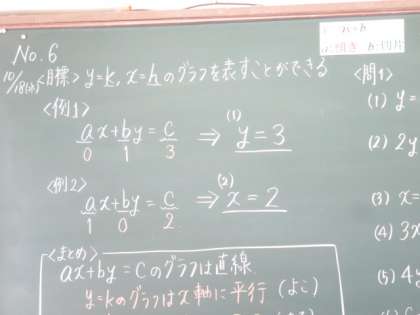 No.6
10/18(水)
<目標> y=k, x=hのグラフを表すことができる
<例1>
ax+by=c ⇒ (1) y=3
0 1 3
<例2>
ax+by=c ⇒ (2) x=2
1 0 2
<まとめ>
ax+by=cのグラフは直線
y=kのグラフはx軸に平行(よこ)
a:傾き b:切片
<問1>
(1) y=
(2) 2y
(3) x=
(4) 3x
(5) 4y